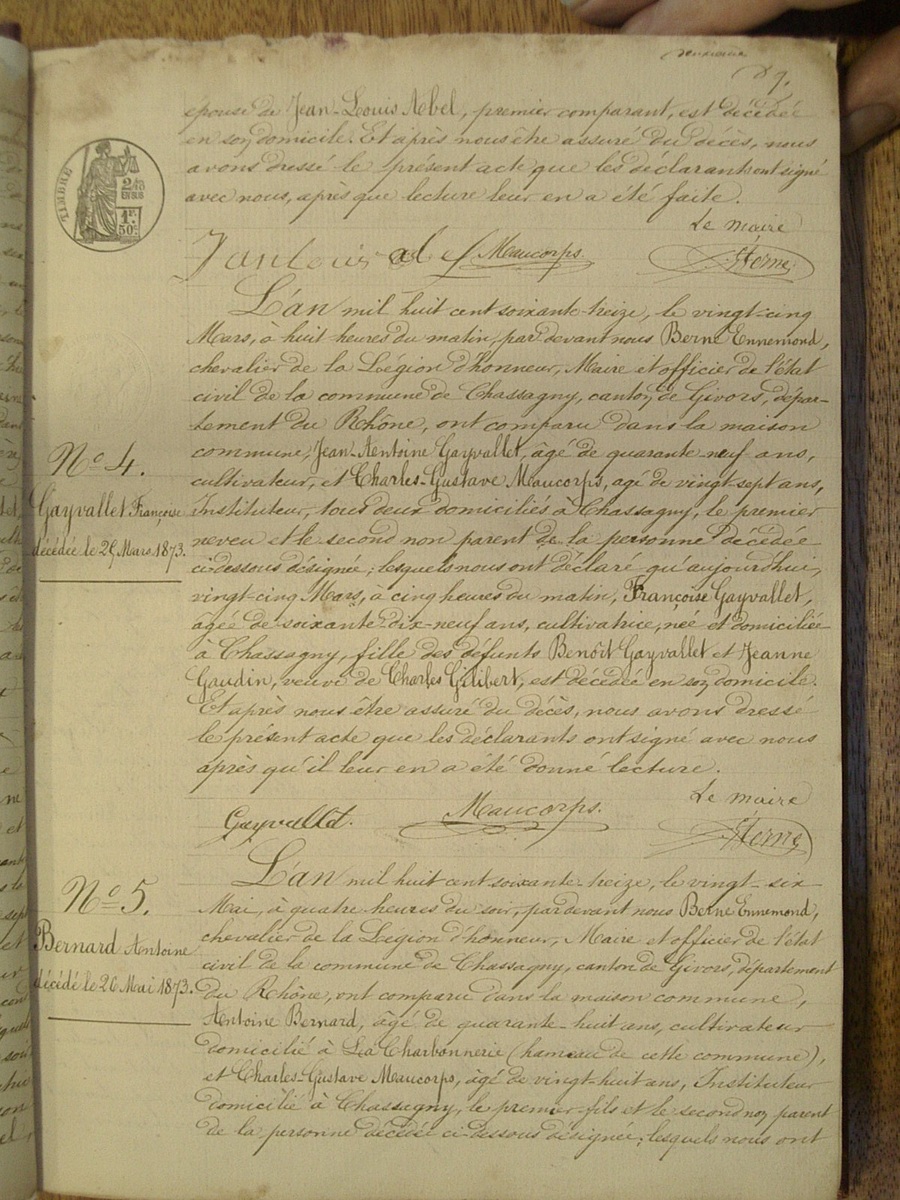 deuxième
épouse de Jean-Louis Abel, premier comparant, est décédée
en son domicile. Et après nous être assuré du décès, nous
avons dressé le présent acte que les déclarants ont signé
avec nous, après que lecture leur en a été faite.
Le maire
TIMBRE
2/10
EN SUS
1F.
50c.
Maucorps
Berne
L'an mil huit cent soixante-treize, le vingt-cinq
Mars, à huit heures du matin, par devant nous Berne Ennemond,
chevalier de la Légion d'honneur, Maire et officier de l'état
civil de la commune de Chassagny, canton de Givors, dépar-
tement du Rhône, ont comparu dans la maison
commune, Jean-Antoine Gayvallet, âgé de quarante-neuf ans,
cultivateur, et Charles-Gustave Maucorps, agé de vingt-sept ans,
Instituteur, tous deux domiciliés à Chassagny, le premier
neveu et le second non parent de la personne décédée
ci-dessous désignée; lesquels nous ont déclaré qu'aujourd'hui,
vingt-cinq Mars, à cinq heures du matin, Françoise Gayvallet,
agée de soixante-dix-neuf ans, cultivatrice, née et domiciliée
à Chassagny, fille des défunts Benoît Gayvallet et Jeanne
Gaudin, veuve de Charles Gilibert, est décédée en son domicile.
Et après nous être assuré du décès, nous avons dressé
le présent acte que les déclarants ont signé avec nous
après qu'il leur en a été donné lecture.
Le maire
Gayvallet. Maucorps. Berne
No 4.
Gayvallet Françoise
décédée le 25 Mars 1873.
L'an mil huit cent soixante-treize, le vingt-six
Mai, à quatre heures du soir, par devant nous Berne Ennemond,
chevalier de la Légion d'honneur, Maire et officier de l'état
civil de la commune de Chassagny, canton de Givors, département
du Rhône, ont comparu dans la maison commune,
Antoine Bernard, âgé de quarante-huit ans, cultivateur
domicilié à La Charbonnerie (hameau de cette commune),
et Charles-Gustave Maucorps, âgé de vingt-huit ans, Instituteur
domicilié à Chassagny, le premier fils et le second non parent
de la personne décédé ci-dessous désignée; lesquels nous ont
No 5.
Bernard Antoine
décédé le 26 Mai 1873.